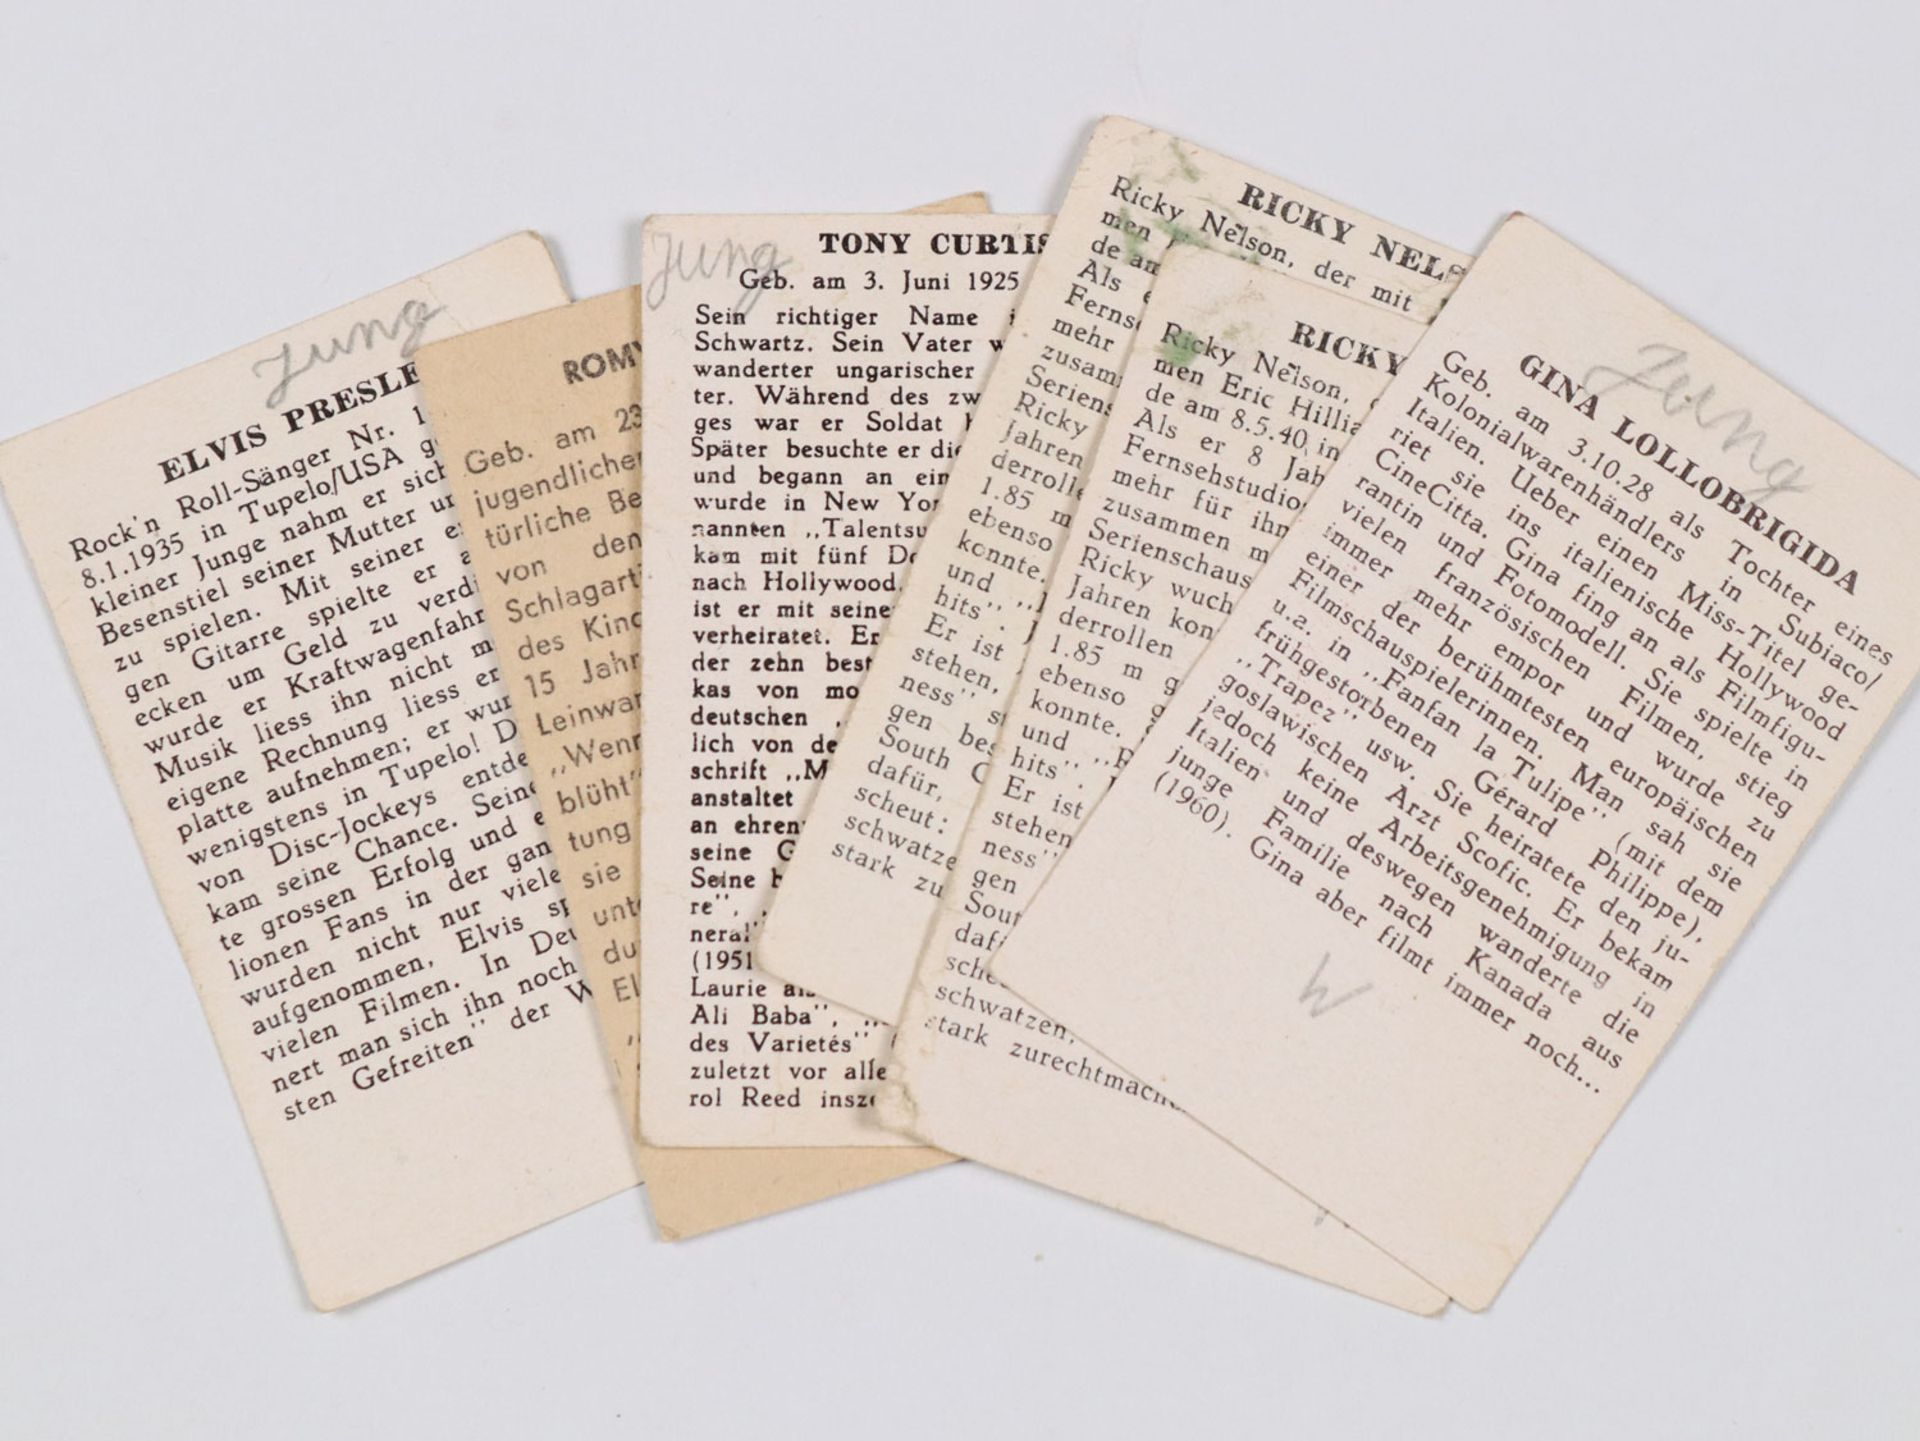 Jung
ELVIS PRESLE
Rock'n Roll-Sänger Nr. 1
8.1.1935 in Tupelo/USA
kleiner Junge nahm er sich
Besenstiel seiner Mutter
zu spielen. Mit seiner
gen Gitarre spielte er
ecken um Geld zu verdi
wurde er Kraftwagenfahr
Musik liess ihn nicht
eigene Rechnung liess er
platte aufnehmen; er wur
wenigstens in Tupelo! D
von Disc-Jockeys entde
kam seine Chance. Seine
te grossen Erfolg und
lionen Fans in der gan
wurden nicht nur viele
aufgenommen, Elvis
vielen Filmen. In Deu
nert man sich ihn noch
sten Gefreiten" der W
ROMY
Geb. am 23
jugendlicher
türliche Be
von den
Schlagarti
des Kinc
15 Jahr
Leinwar
„Wenn
blüht"
tung
sie
unte
du
El
Jung
TONY CURTIS
Geb. am 3. Juni 1925
Sein richtiger Name i
Schwartz. Sein Vater w
wanderter ungarischer
ter. Während des zw
ges war er Soldat
Später besuchte er die
und begann an ein
wurde in New Yor
nannten „Talentsu
kam mit fünf Do
nach Hollywood.
ist er mit seiner
verheiratet. Er
der zehn best
kas von mo
deutschen „
lich von de
schrift „M
anstaltet
an ehren
seine G
Seine
re", „
neral"
(1951
Laurie als
Ali Baba", „
des Varietés" (
zuletzt vor alle
rol Reed insze
RICKY NELS
Ricky Nelson, der mit
men
de am
Als e
Ferns
mehr
zusam
Seriens
Ricky
Jahren
derrolle
1.85 m
ebenso
konnte.
und „
hits".
Er ist
stehen,
ness" s
gen bes
South C
dafür,
scheut:
schwatze
stark zu
RICKY
Ricky Nelson,
men Eric Hillia
de am 8.5.40 in
Als er 8 Jah
Fernsehstudio
mehr für ihn
zusammen m
Serienschaus
Ricky wuch
Jahren kon
derrollen
1.85 m g
ebenso g
konnte.
und „P
hits".
Er ist
stehen
ness"
gen
Sout
dafü
sche
schwatzen,
stark zurechtmach
Jung
GINA LOLLOBRIGIDA
Geb. am 3.10.28 als Tochter eines
Kolonialwarenhändlers in Subiaco/
Italien. Ueber einen Miss-Titel ge-
riet sie ins italienische Hollywood
CineCitta. Gina fing an als Filmfigu-
rantin und Fotomodell. Sie spielte in
vielen französischen Filmen, stieg
immer mehr empor und wurde zu
einer der berühmtesten europäischen
Filmschauspielerinnen. Man sah sie
u.a. in „Fanfan la Tulipe" (mit dem
frühgestorbenen Gérard Philippe),
„Trapez" usw. Sie heiratete den ju-
goslawischen Arzt Scofic. Er bekam
jedoch keine Arbeitsgenehmigung in
Italien und deswegen wanderte die
junge Familie nach Kanada aus
(1960). Gina aber filmt immer noch...